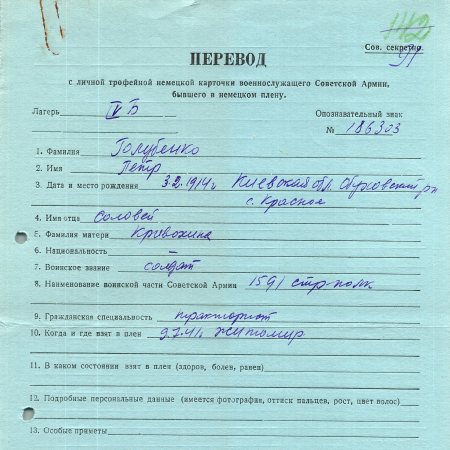 112
Сов. секретно
91
ПЕРЕВОД
с личной трофейной немецкой карточки военнослужащего Советской Армии,
бывшего в немецком плену.
Лагерь IV Б Опознавательный знак
№ 186303
1. Фамилия Голубенко
2. Имя Петр
3. Дата и место рождения 3.2.1914г. Киевская обл. Обуховский р-н
с. Красное
4. Имя отца Соловей
5. Фамилия матери Кривохина
6. Национальность —
7. Воинское звание солдат
8. Наименование воинской части Советской Армии 1591 стр-полк
9. Гражданская специальность тракторист
10. Когда и где взят в плен 9.7.41. Житомир
11. В каком состоянии взят в плен (здоров, болен, ранен)
12. Подробные персональные данные (имеется фотография, оттиск пальцев, рост, цвет волос)
13. Особые приметы